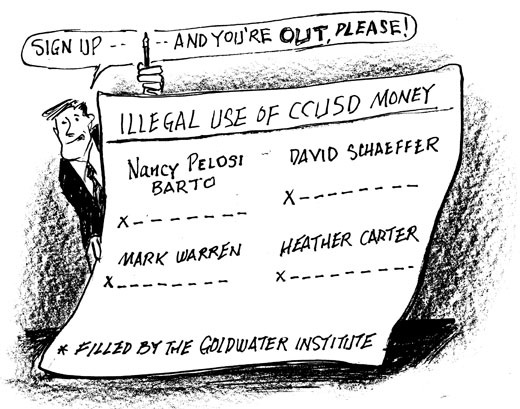 SIGN UP -- -- AND YOU'RE OUT, PLEASE!
ILLEGAL USE OF CCUSD MONEY
Nancy Pelosi DAVID SCHAEFFER
BARTO
X-------- X--------
MARK WARREN HEATHER CARTER
X-------- X--------
* FILLED BY THE GOLDWATER INSTITUTE